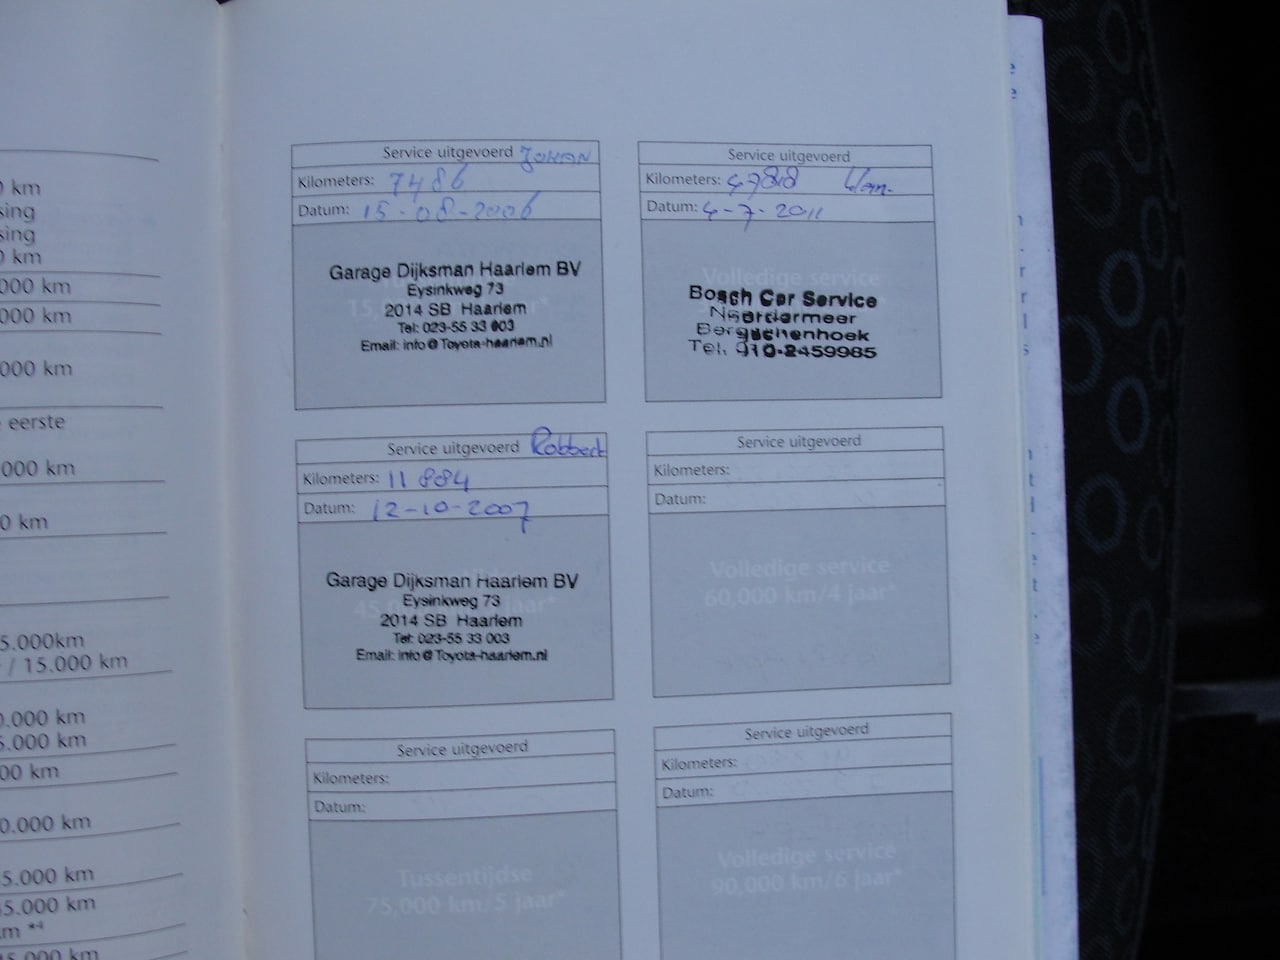 0 km
sing
sing
0 km
000 km
000 km
000 km
eerste
000 km
0 km
5.000km
/ 15.000 km
0.000 km
5.000 km
00 km
0.000 km
5.000 km
5.000 km
km *4
15.000 km
Service uitgevoerd JOHAN
Kilometers: 7486
Datum: 15-08-2006
Garage Dijksman Haarlem BV
Eysinkweg 73
2014 SB Haarlem
Tel: 023-55 33 003
Email: info@Toyota-haarlem.nl
Service uitgevoerd
Kilometers:
Datum: 4-7-2011
Volledige service
Bosch Car Service
Noordermeer
Bergschenhoek
Tel. 010-2459985
Service uitgevoerd Robbert
Kilometers: 11884
Datum: 12-10-2007
45, jaar*
Garage Dijksman Haarlem BV
Eysinkweg 73
2014 SB Haarlem
Tel: 023-55 33 003
Email: info@Toyota-haarlem.nl
Service uitgevoerd
Kilometers:
Datum:
Volledige service
60,000 km/4 jaar*
Service uitgevoerd
Kilometers:
Datum:
Tussentijdse
75,000 km/5 jaar*
Service uitgevoerd
Kilometers:
Datum:
Volledige service
90,000 km/6 jaar*